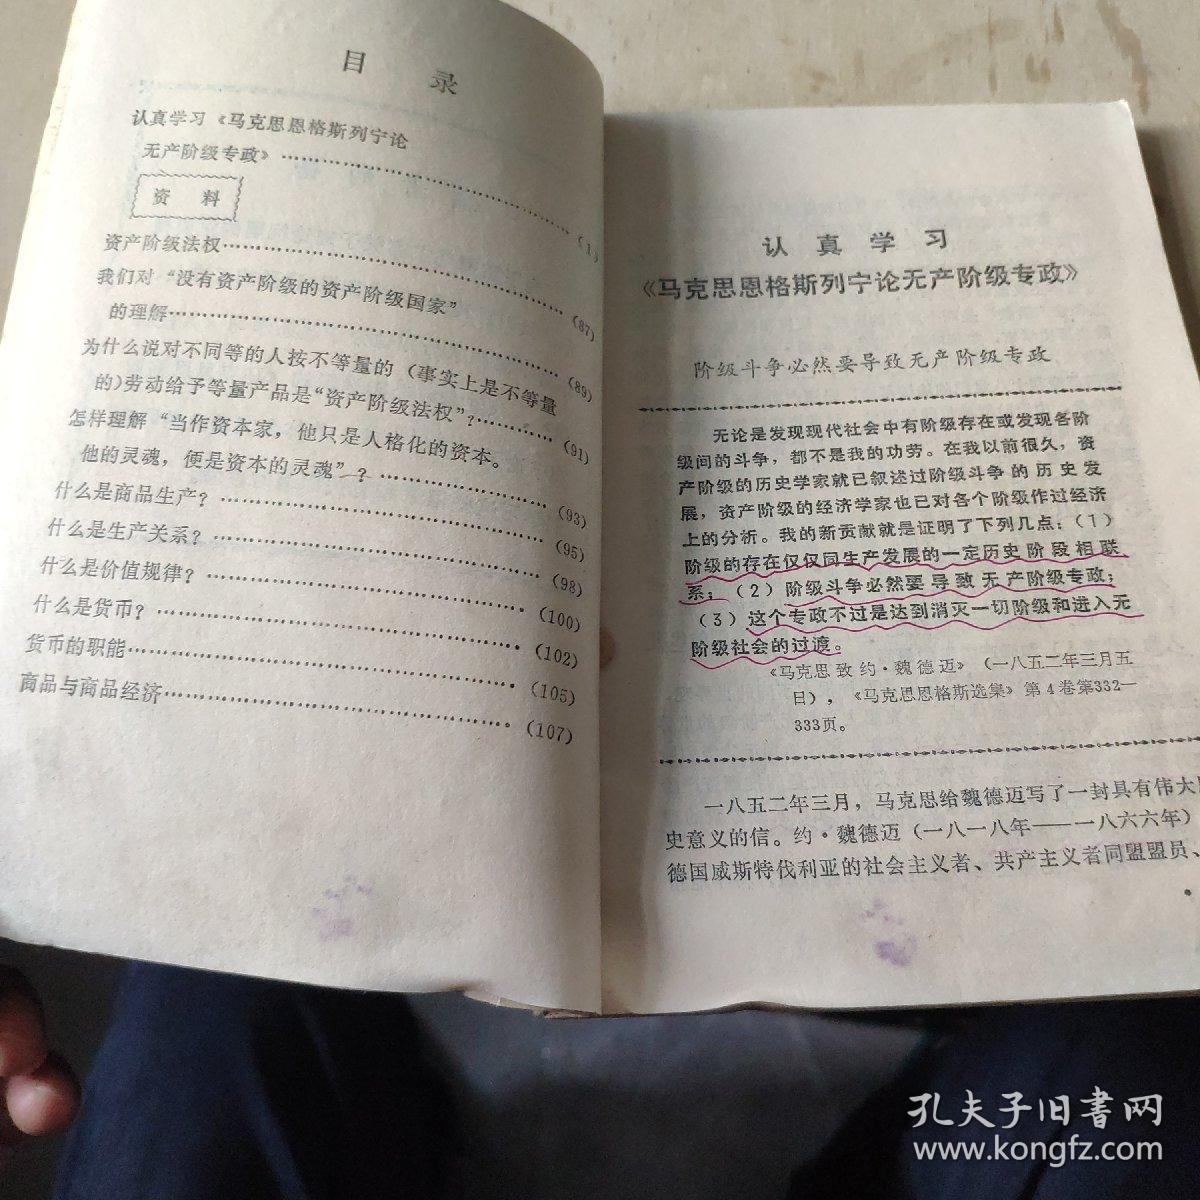 目 录
认真学习《马克思恩格斯列宁论
无产阶级专政》……………………(1)
资 料
资产阶级法权……………………(87)
我们对“没有资产阶级的资产阶级国家”
的理解……………………(89)
为什么说对不同等的人按不等量的(事实上是不等量
的)劳动给予等量产品是“资产阶级法权”?…………(91)
怎样理解“当作资本家,他只是人格化的资本。
他的灵魂,便是资本的灵魂”?……………………(93)
什么是商品生产?……………………(95)
什么是生产关系?……………………(98)
什么是价值规律?……………………(100)
什么是货币?……………………(102)
货币的职能……………………(105)
商品与商品经济……………………(107)
认真学习
《马克思恩格斯列宁论无产阶级专政》
阶级斗争必然要导致无产阶级专政
无论是发现现代社会中有阶级存在或发现各阶
级间的斗争,都不是我的功劳。在我以前很久,资
产阶级的历史学家就已叙述过阶级斗争的历史发
展,资产阶级的经济学家也已对各个阶级作过经济
上的分析。我的新贡献就是证明了下列几点:(1)
阶级的存在仅仅同生产发展的一定历史阶段相联
系;(2)阶级斗争必然要导致无产阶级专政;
(3)这个专政不过是达到消灭一切阶级和进入无
阶级社会的过渡。
《马克思致约·魏德迈》(一八五二年三月五
日),《马克思恩格斯选集》第4卷第332—
333页。
一八五二年三月,马克思给魏德迈写了一封具有伟大
史意义的信。约·魏德迈(一八一八年——一八六六年)
德国威斯特伐利亚的社会主义者、共产主义者同盟盟员、
孔夫子旧書网
www.kongfz.com